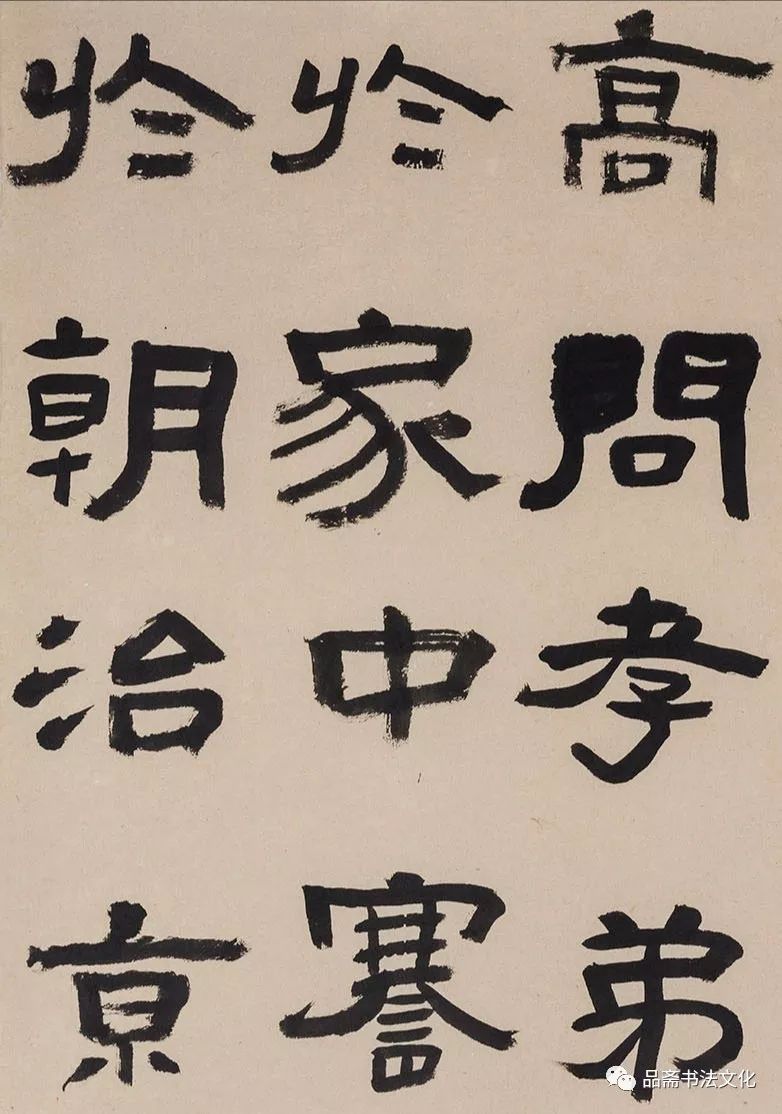 高問孝弟
於家中謇
於朝治京
品斋书法文化